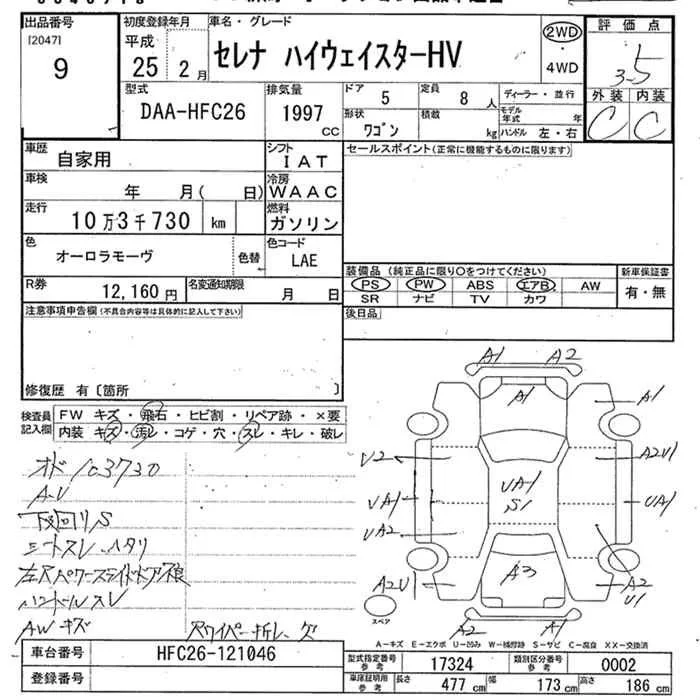 出品番号 初度登録年月 車名・グレード 評価点
[2047] 9
平成 25 2月 セレナ ハイウェイスターHV 2WD ・ 4WD 3.5
型式 排気量 ドア 定員 ディーラー・並行 外装 内装
DAA-HFC26 1997 CC 5 8人 C C
形状 ワゴン 積載 kg モデル年式 年 ハンドル 左・右
車歴 自家用 シフト IAT セールスポイント(正常に機能するものに限ります)
車検 年 月( 日) 冷房 WAAC
走行 10万3千730 km 燃料 ガソリン
色 オーロラモーヴ 色替 色コード LAE
装備品(純正品に限り○をつけてください) 新車保証書
PS PW ABS エアB AW 有・無
SR ナビ TV カワ
R券 12,160円 名変通知期限 月 日 後日品
注意事項申告欄(不具合内容等は具体的に記入して下さい)
修復歴 有〔箇所 〕
検査員記入欄 FW キズ・飛石・ヒビ割・リペア跡・×要
内装 キズ・汚レ・コゲ・穴・スレ・キレ・破レ
オド103730
A・U
下回りS
シートスレ、ヘタリ
左Rパワースライドドア不良
ハンドルスレ
AWキズ
Rワイパー折レ
A1 A2
A1
A1
U2 A2U1
UA1 UA1 S1 UA1
UA2
A2U1 A3 A2 U1
スペア
A2 A1
A-キズ E-エクボ U-凹み W-補修跡 S-サビ C-腐食 XX-交換済
車台番号 HFC26-121046 型式指定番号 参考 17324 類別区分番号 参考 0002
登録番号 車庫証明用 参考 長さ 477 cm 幅 173 cm 高さ 186 cm